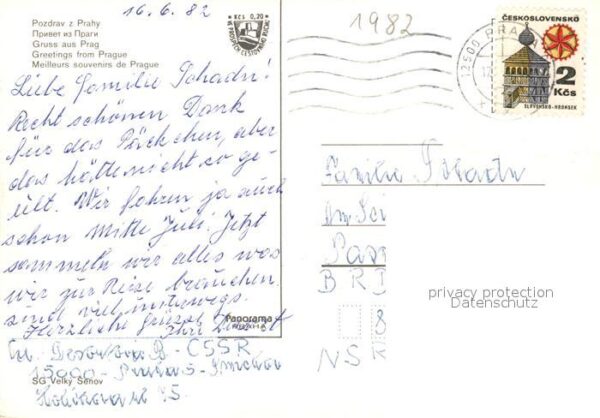 16. 6. 82
Pozdrav z Prahy
Привет из Праги
Gruss aus Prag
Greetings from Prague
Meilleurs souvenirs de Prague
Liebe Familie Schadn!
Recht schönen Dank
für das Päckchen, aber
das hätte nicht so ge-
eilt. Wir fahren ja auch
schon Mitte Juli. Jetzt
sammeln wir alles was
wir zur Reise brauchen.
sind viel unterwegs.
Herzliche Grüsse Ihre
ČSSR
15000 - Praha 5 - Smíchov
SG Velký Šenov
Panorama
PRAHA
1982
ČESKOSLOVENSKO
2
Kčs
SLOVENSKO-HRONSEK
12500 PRAHA
Familie
Am
BRD
8
NSR
privacy protection
Datenschutz